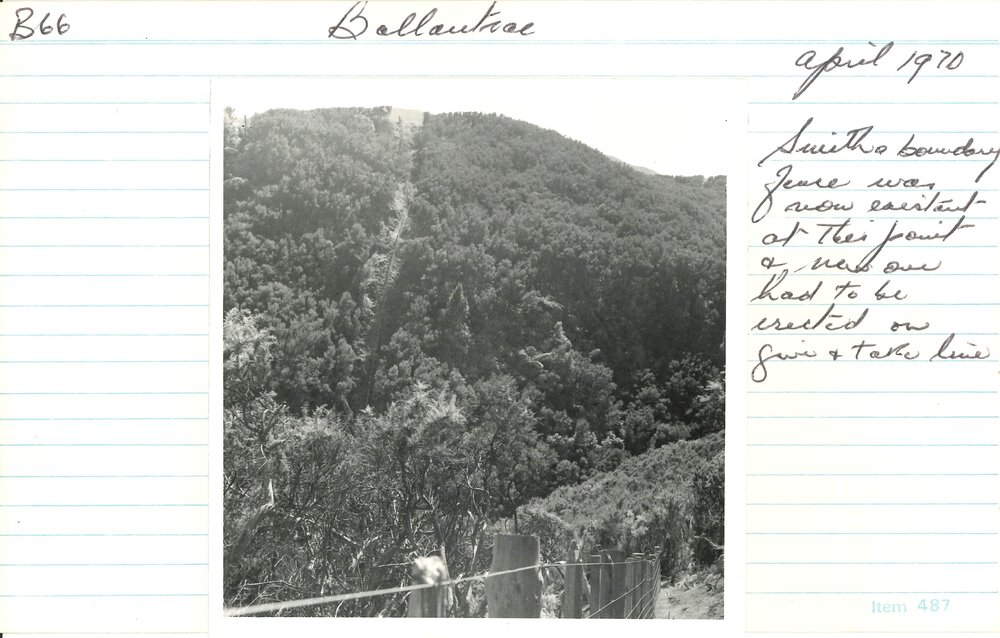 B66
Ballantrae
April 1970
Smiths boundary
fence was
non existant
at this point
& new one
had to be
erected on
give & take line
Item 487